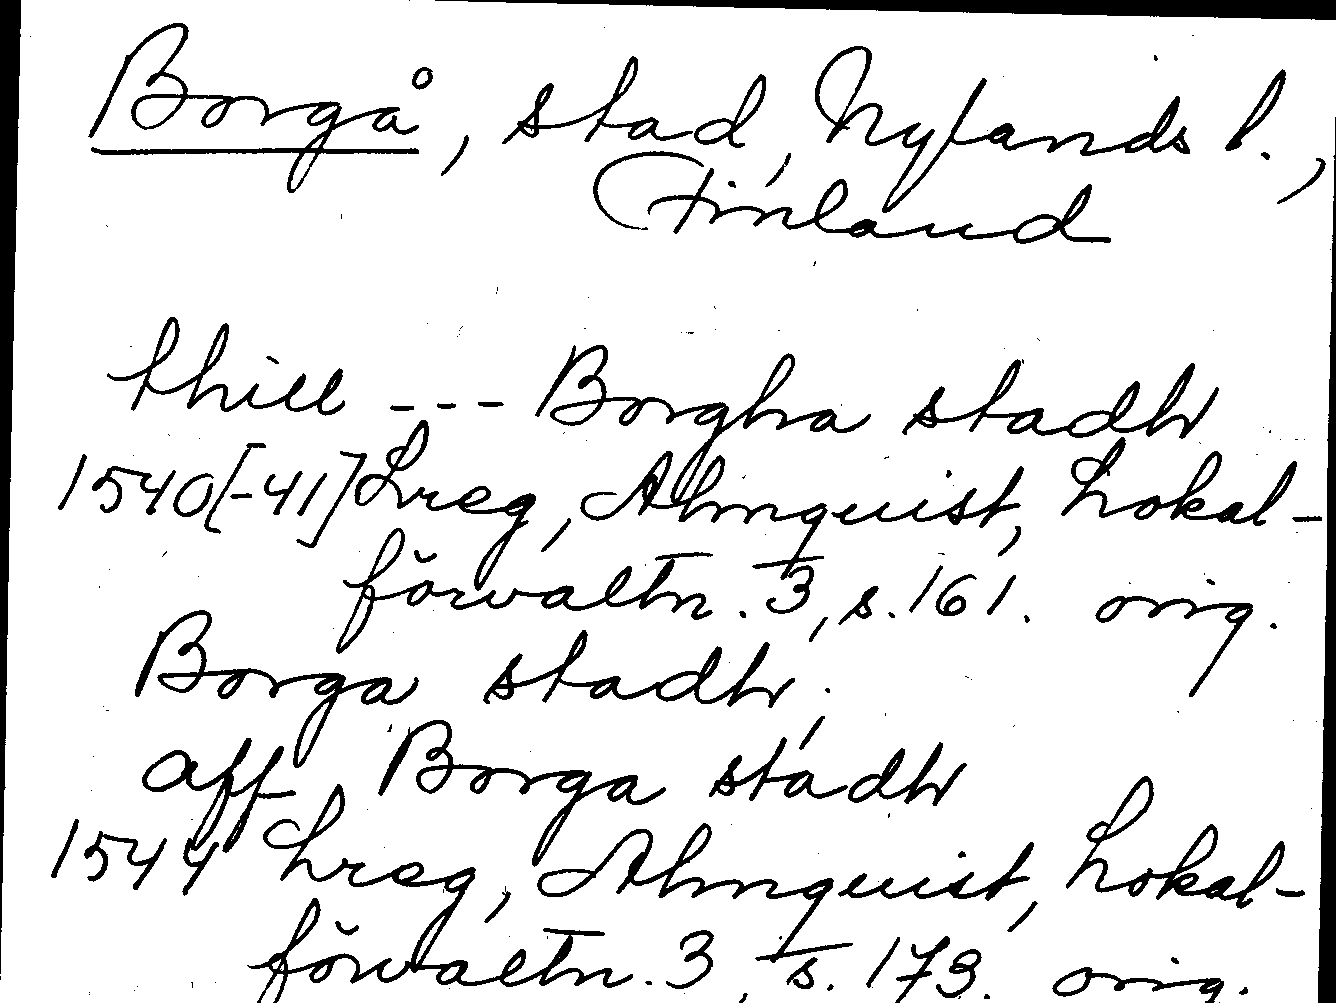 Borgå, stad, Nylands l.,
Finland
thill --- Borgha stadh
1540[-41] Lreg, Almquist, Lokal-
förvaltn. 3, s. 161. orig.
Borga stadh,
aff Borga stadh
1544 Lreg, Almquist, Lokal-
förvaltn. 3, s. 173. orig.